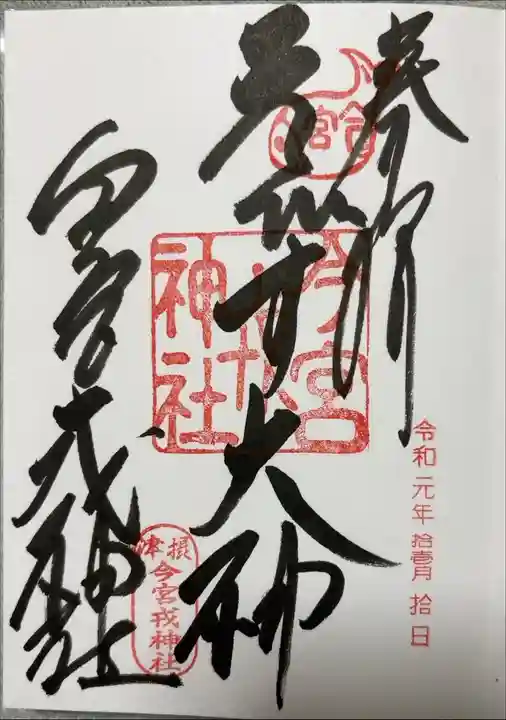 奉拝
ゑびす大神
今宮戎神社
今宮
今宮戎神社
摂津
今宮戎神社
令和元年拾壱月拾日